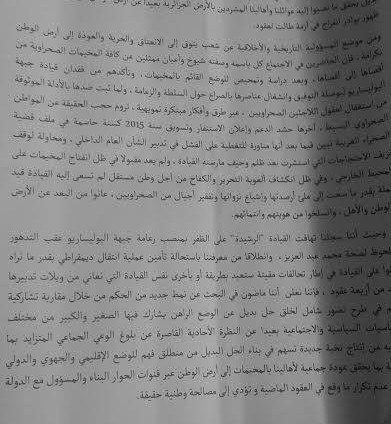 بديل يحقق ما تصبوا إليه عوائلنا وأهالينا المشردين بالأرض الجزائرية بعيدا عن
ظهور بوادر انفراج في أزمة طالت لعقود.
ومن موضع المسؤولية التاريخية والأخلاقية عن شعب يتوق إلى الانعتاق والحرية والعودة إلى أرض الوطن
بكرامة، فإن الحاضرين في الاجتماع كل باسمه وصفته شيوخ وأعيان ممثلين عن كافة المخيمات الصحراوية من
أقصاها إلى أقصاها، وبعد دراسة وتمحيص للوضع القائم بالمخيمات، وتأكدهم من فقدان قيادة جبهة
البوليساريو لبوصلة التوفيق وانشغال عناصرها بالصراع حول السلطة والزعامة، ولما ثبت ضدها بالأدلة الموثوقة
من استغلال لعقود اللاجئين الصحراويين، عبر طرق وأفكار مبتكرة تمويهية، تروم حجب الحقيقة عن المواطن
الصحراوي البسيط، آخرها حشد الدعم وإعلان الاستنفار وتسويق سنة 2015 كسنة حاسمة في ملف قضية
الصحراء الغربية تبين فيما بعد أنها مناورة للتغطية على الفشل في تدبير الشأن العام الداخلي، ومحاولة لوقف
نزيف الاحتجاجات التي استشرت بعد ظلم وحيف مارسته القيادة، ولم يعد مقبولا في ظل انفتاح المخيمات على
المحيط الخارجي، وفي ظل انكشاف ألعوبة التحرير والكفاح من أجل وطن مستقل لم تسعى إليه القيادة قيد
بقدر ما سعت إلى ملئ أرصدتها وإشباع نزواتها وتفقير أجيال من الصحراويين، عانوا من البعد عن الأرض
الوطن والأهل، وانسلخوا من هويتهم وانتمائهم.
وحيث أننا سجلنا تهافت القيادة "الرشيدة" على الظفر بمنصب زعامة جبهة البوليساريو عقب التدهور
لصحة محمد عبد العزيز، وانطلاقا من معرفتنا باستحالة تأمين عملية انتقال ديمقراطي بقدر ما نراه
على القيادة في إطار تحالفات مقيتة ستعيد بطريقة أو بأخرى نفس القيادة التي نعاني من ويلات تدبيرها
أربعة عقود، فإننا نعلن أننا ماضون في البحث عن نمط جديد من الحكم من خلال مقاربة تشاركية
في طرح تصور شامل لخلق حل بديل عن الوضع الراهن يشارك فيها الصغير والكبير من مختلف
السياسية والاجتماعية بعيدا عن النظرة الأحادية القاصرة عن بلوغ الوعي الجماعي المتزايد بما
عن إنتاج نخبة جديدة تسهم في بناء الحل البديل من منطلق فهم للوضع الإقليمي والجهوي والدولي
بما يحقق عودة جماعية لأهالينا بالمخيمات إلى أرض الوطن عبر قنوات الحوار البناء والمسؤول مع الدولة
عدم تكرار ما وقع في العقود الماضية وتؤدي إلى مصالحة وطنية حقيقة.